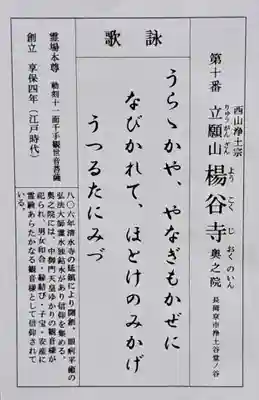 西山浄土宗
第十番 立願山 楊谷寺 奥之院 長岡京市浄土谷堂ノ谷
りゅうがんざん
ようこくじ おくのいん
詠歌
うらゝかや、やなぎもかぜに
なびかれて、ほとけのみかげ
うつるたにみづ
霊場本尊 勅刻十一面千手観世音菩薩
創立 享保四年(江戸時代)
八〇六年清水寺の延鎮により開創、眼病平癒の
弘法大師霊水独鈷水があり信仰を集める。
奥之院には、中御門天皇ゆかりの観音様が
祀られ、男女和合・縁結び・子宝・安産に
霊験あらたかなる観音様として信仰されて
いる。